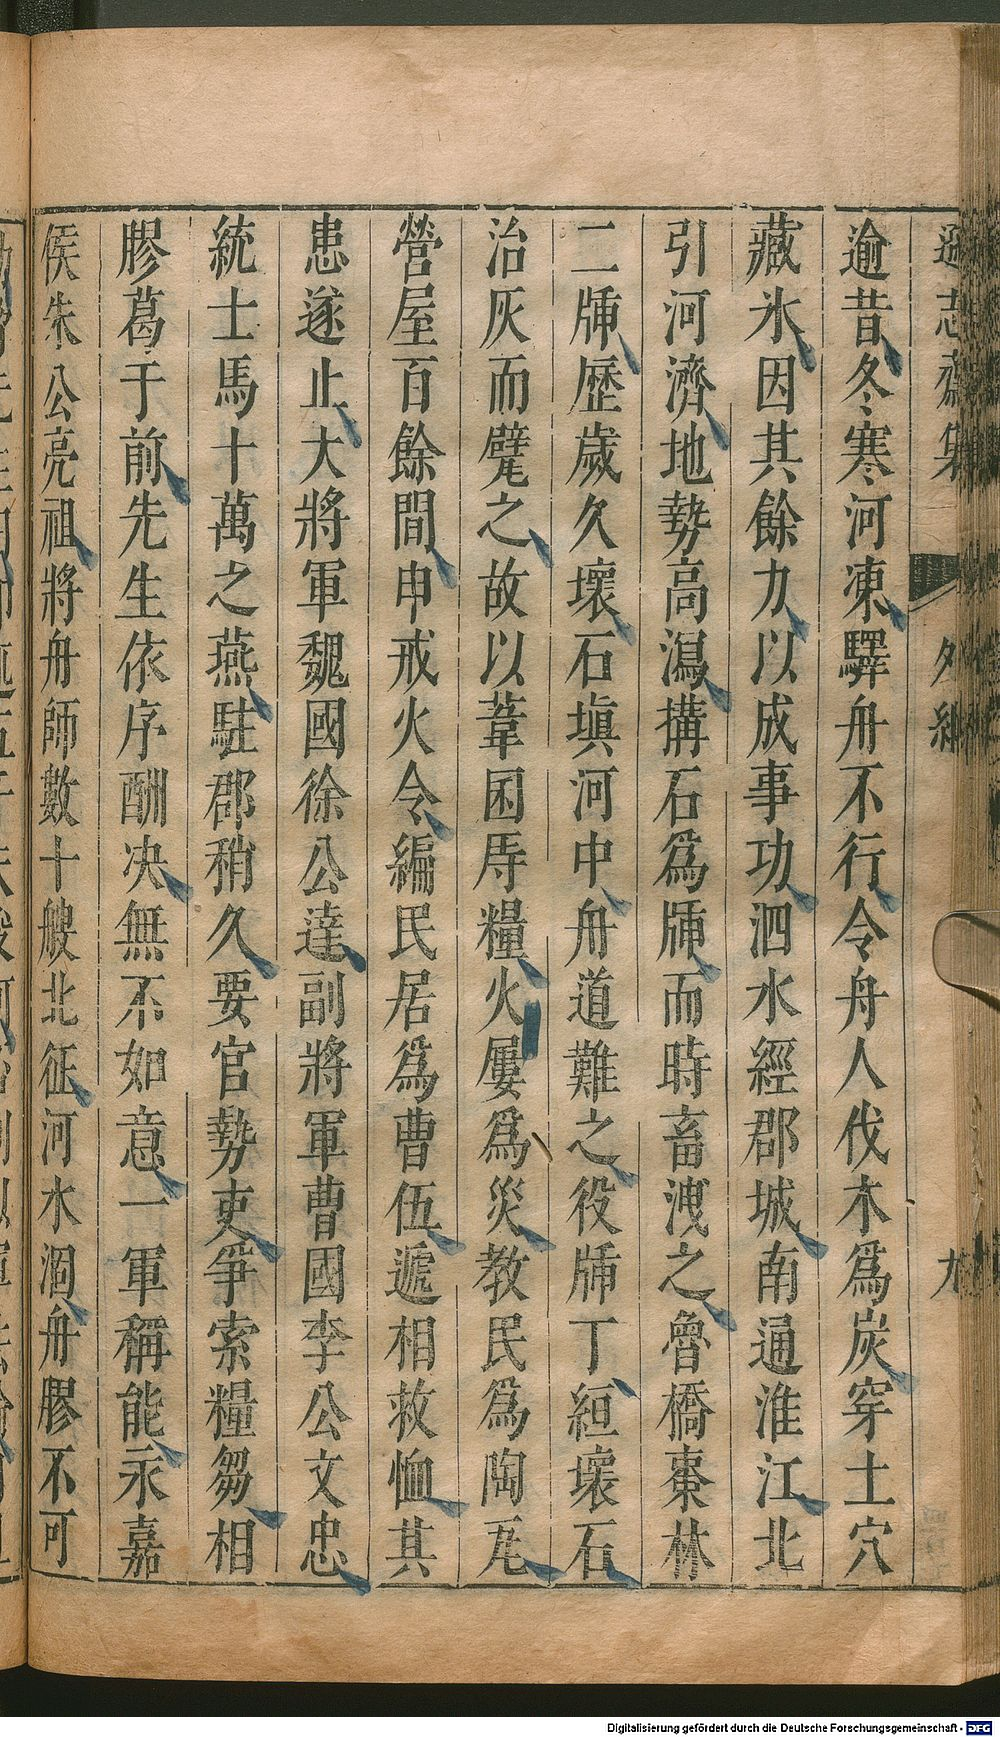 逾昔冬寒河凍驛舟不行令舟人伐木爲炭穿土穴
藏氷因其餘力以成事功泗水經郡城南通淮江北
引河濟地勢高瀉搆石爲牐而時畜洩之魯橋棗林
二牐歷歲久壞石塡河中舟道難之役牐丁絙壞石
治灰而甓之故以葦囷庤糧火屢爲災教民爲陶瓦
營屋百餘間申戒火令編民居爲曹伍遞相救恤其
患遂止大將軍魏國徐公達副將軍曹國李公文忠
統士馬十萬之燕駐郡稍久要官勢吏爭索糧芻相
膠葛于前先生依序酬決無不如意一軍稱能永嘉
侯朱公亮祖將舟師數十艘北征河水涸舟膠不可
遜志齋集 外紀 九
Digitalisierung gefördert durch die Deutsche Forschungsgemeinschaft - DFG